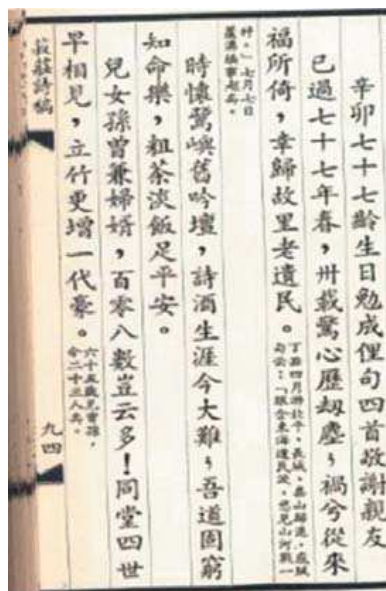 辛卯七十七齡生日勉成俚句四首敬謝親友
已過七十七年春，卅載驚心歷劫塵，禍兮從來
福所倚，幸歸故里老遺民。
四月游北平、長城、泰山歸途，
句云：「眼含東海遺民淚，忍見山河戰一
枰。」七月七日
蘆溝橋事起矣。
時懷鷺嶼舊吟壇，詩酒生涯今大難，吾道固窮
知命樂，粗茶淡飯足平安。
兒女孫曾兼婦婿，百零八數豈云多！同堂四世
早相見，立竹更增一代豪。
六十五歲見曾孫，
今二十三人矣。
菽莊詩稿
九四